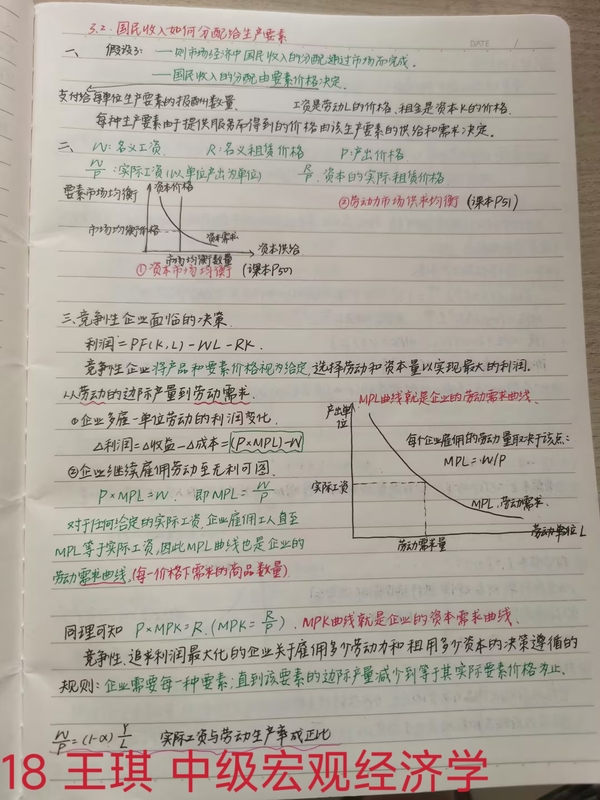 3.2. 国民收入如何分配给生产要素
DATE
一、 假设3: 一则市场经济中国民收入的分配通过市场而完成.
一国民收入的分配由要素价格决定.
支付给每单位生产要素的报酬数量. 工资是劳动L的价格、租金是资本K的价格.
每种生产要素由于提供服务所得到的价格由该生产要素的供给和需求决定.
二、 W: 名义工资. R: 名义租赁价格 P: 产出价格
W/P: 实际工资(以单位产出为单位) R/P. 资本的实际租赁价格
要素市场均衡 资本价格 ②劳动力市场供求均衡 (课本P51)
市场均衡价格 资本需求
资本供给
市场均衡数量
①资本市场均衡 (课本P50)
三、竞争性企业面临的决策.
利润=PF(K,L)-WL-RK.
竞争性企业将产品和要素价格视为给定, 选择劳动和资本量以实现最大的利润.
从劳动的边际产量到劳动需求. MPL曲线就是企业的劳动需求曲线.
①企业多雇一单位劳动的利润变化. 产出单位
△利润=△收益-△成本=(P×MPL)-W 每个企业雇佣的劳动量取决于该点:
MPL=W/P
②企业继续雇佣劳动至无利可图.
P×MPL=W. 即MPL=W/P 实际工资
对于任何给定的实际工资, 企业雇佣工人直至 MPL, 劳动需求.
MPL等于实际工资, 因此MPL曲线也是企业的 劳动单位L
劳动需求曲线. (每一价格下需求的商品数量) 劳动需求量
同理可知 P×MPK=R. (MPK=R/P). MPK曲线就是企业的资本需求曲线.
竞争性、追求利润最大化的企业关于雇用多少劳动力和租用多少资本的决策遵循的
规则: 企业需要每一种要素; 直到该要素的边际产量减少到等于其实际要素价格为止.
W/P=(1-α)Y/L 实际工资与劳动生产率成正比
18 王琪 中级宏观经济学